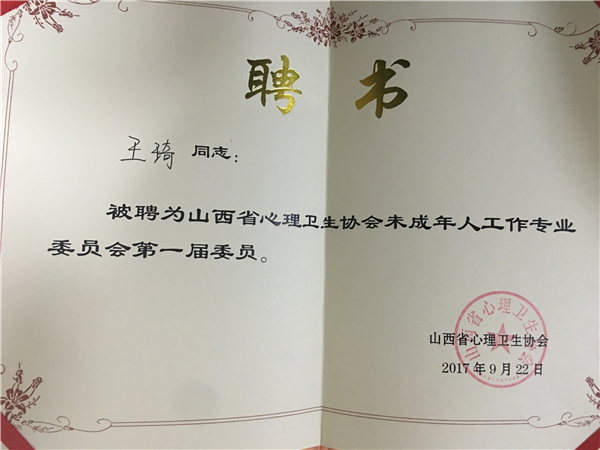 聘书
王琦 同志：
被聘为山西省心理卫生协会未成年人工作专业
委员会第一届委员。
山西省心理卫生协会
2017年9月22日
山西省心理卫生协会